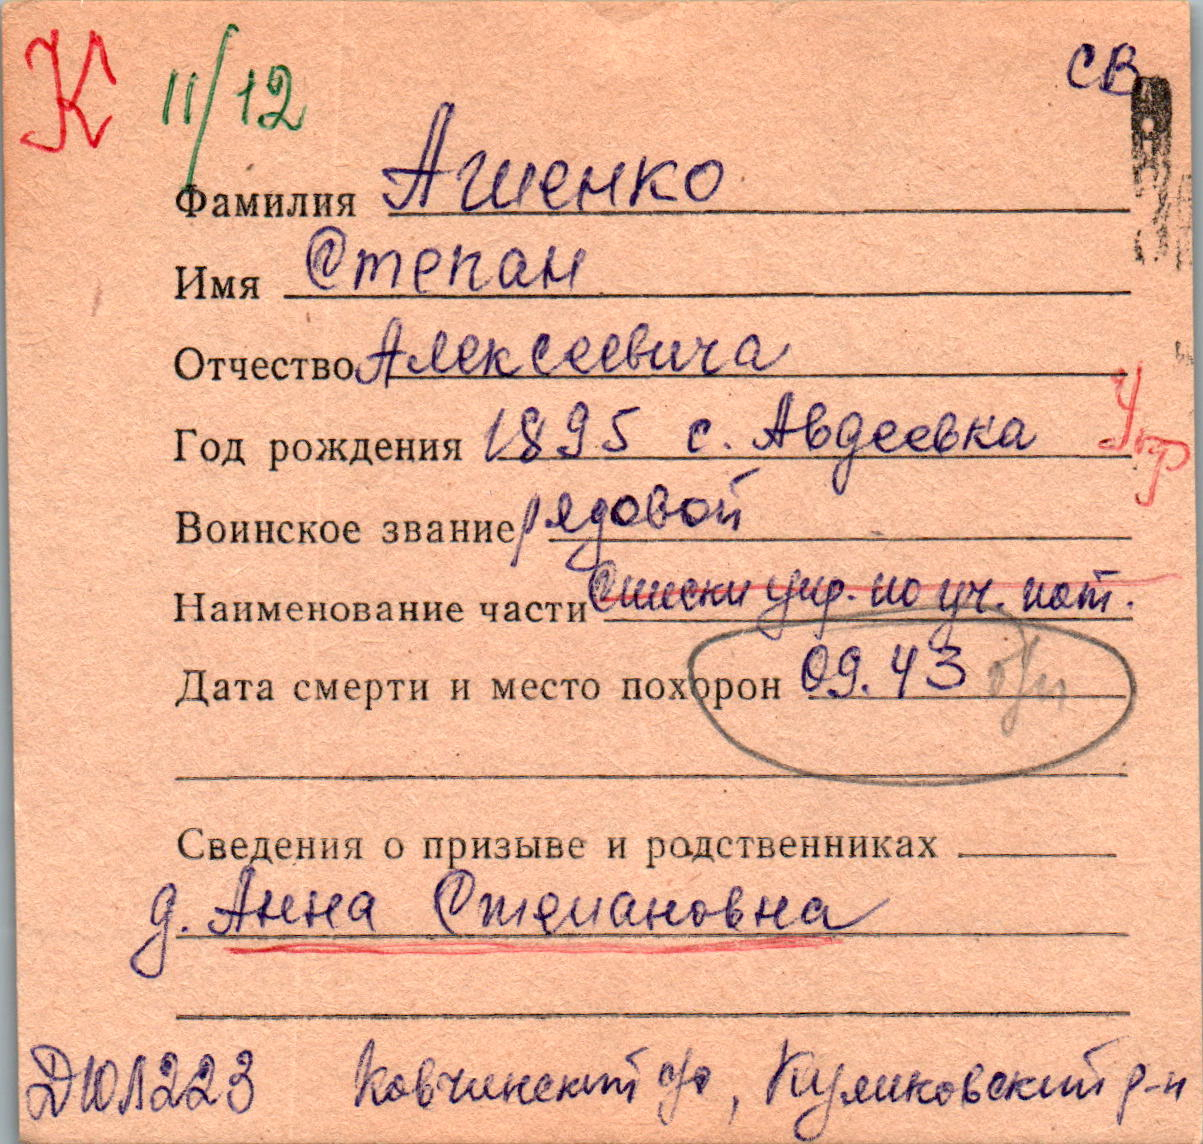 К 11/12 св
Фамилия Агиенко
Имя Степан
Отчество Алексеевича
Год рождения 1895 с. Авдеевка Укр
Воинское звание рядовой
Наименование части Списки упр. по уч. пот.
Дата смерти и место похорон 09.43 б/п
Сведения о призыве и родственниках
д. Анна Степановна
Ковчинский с/с, Куликовский р-н